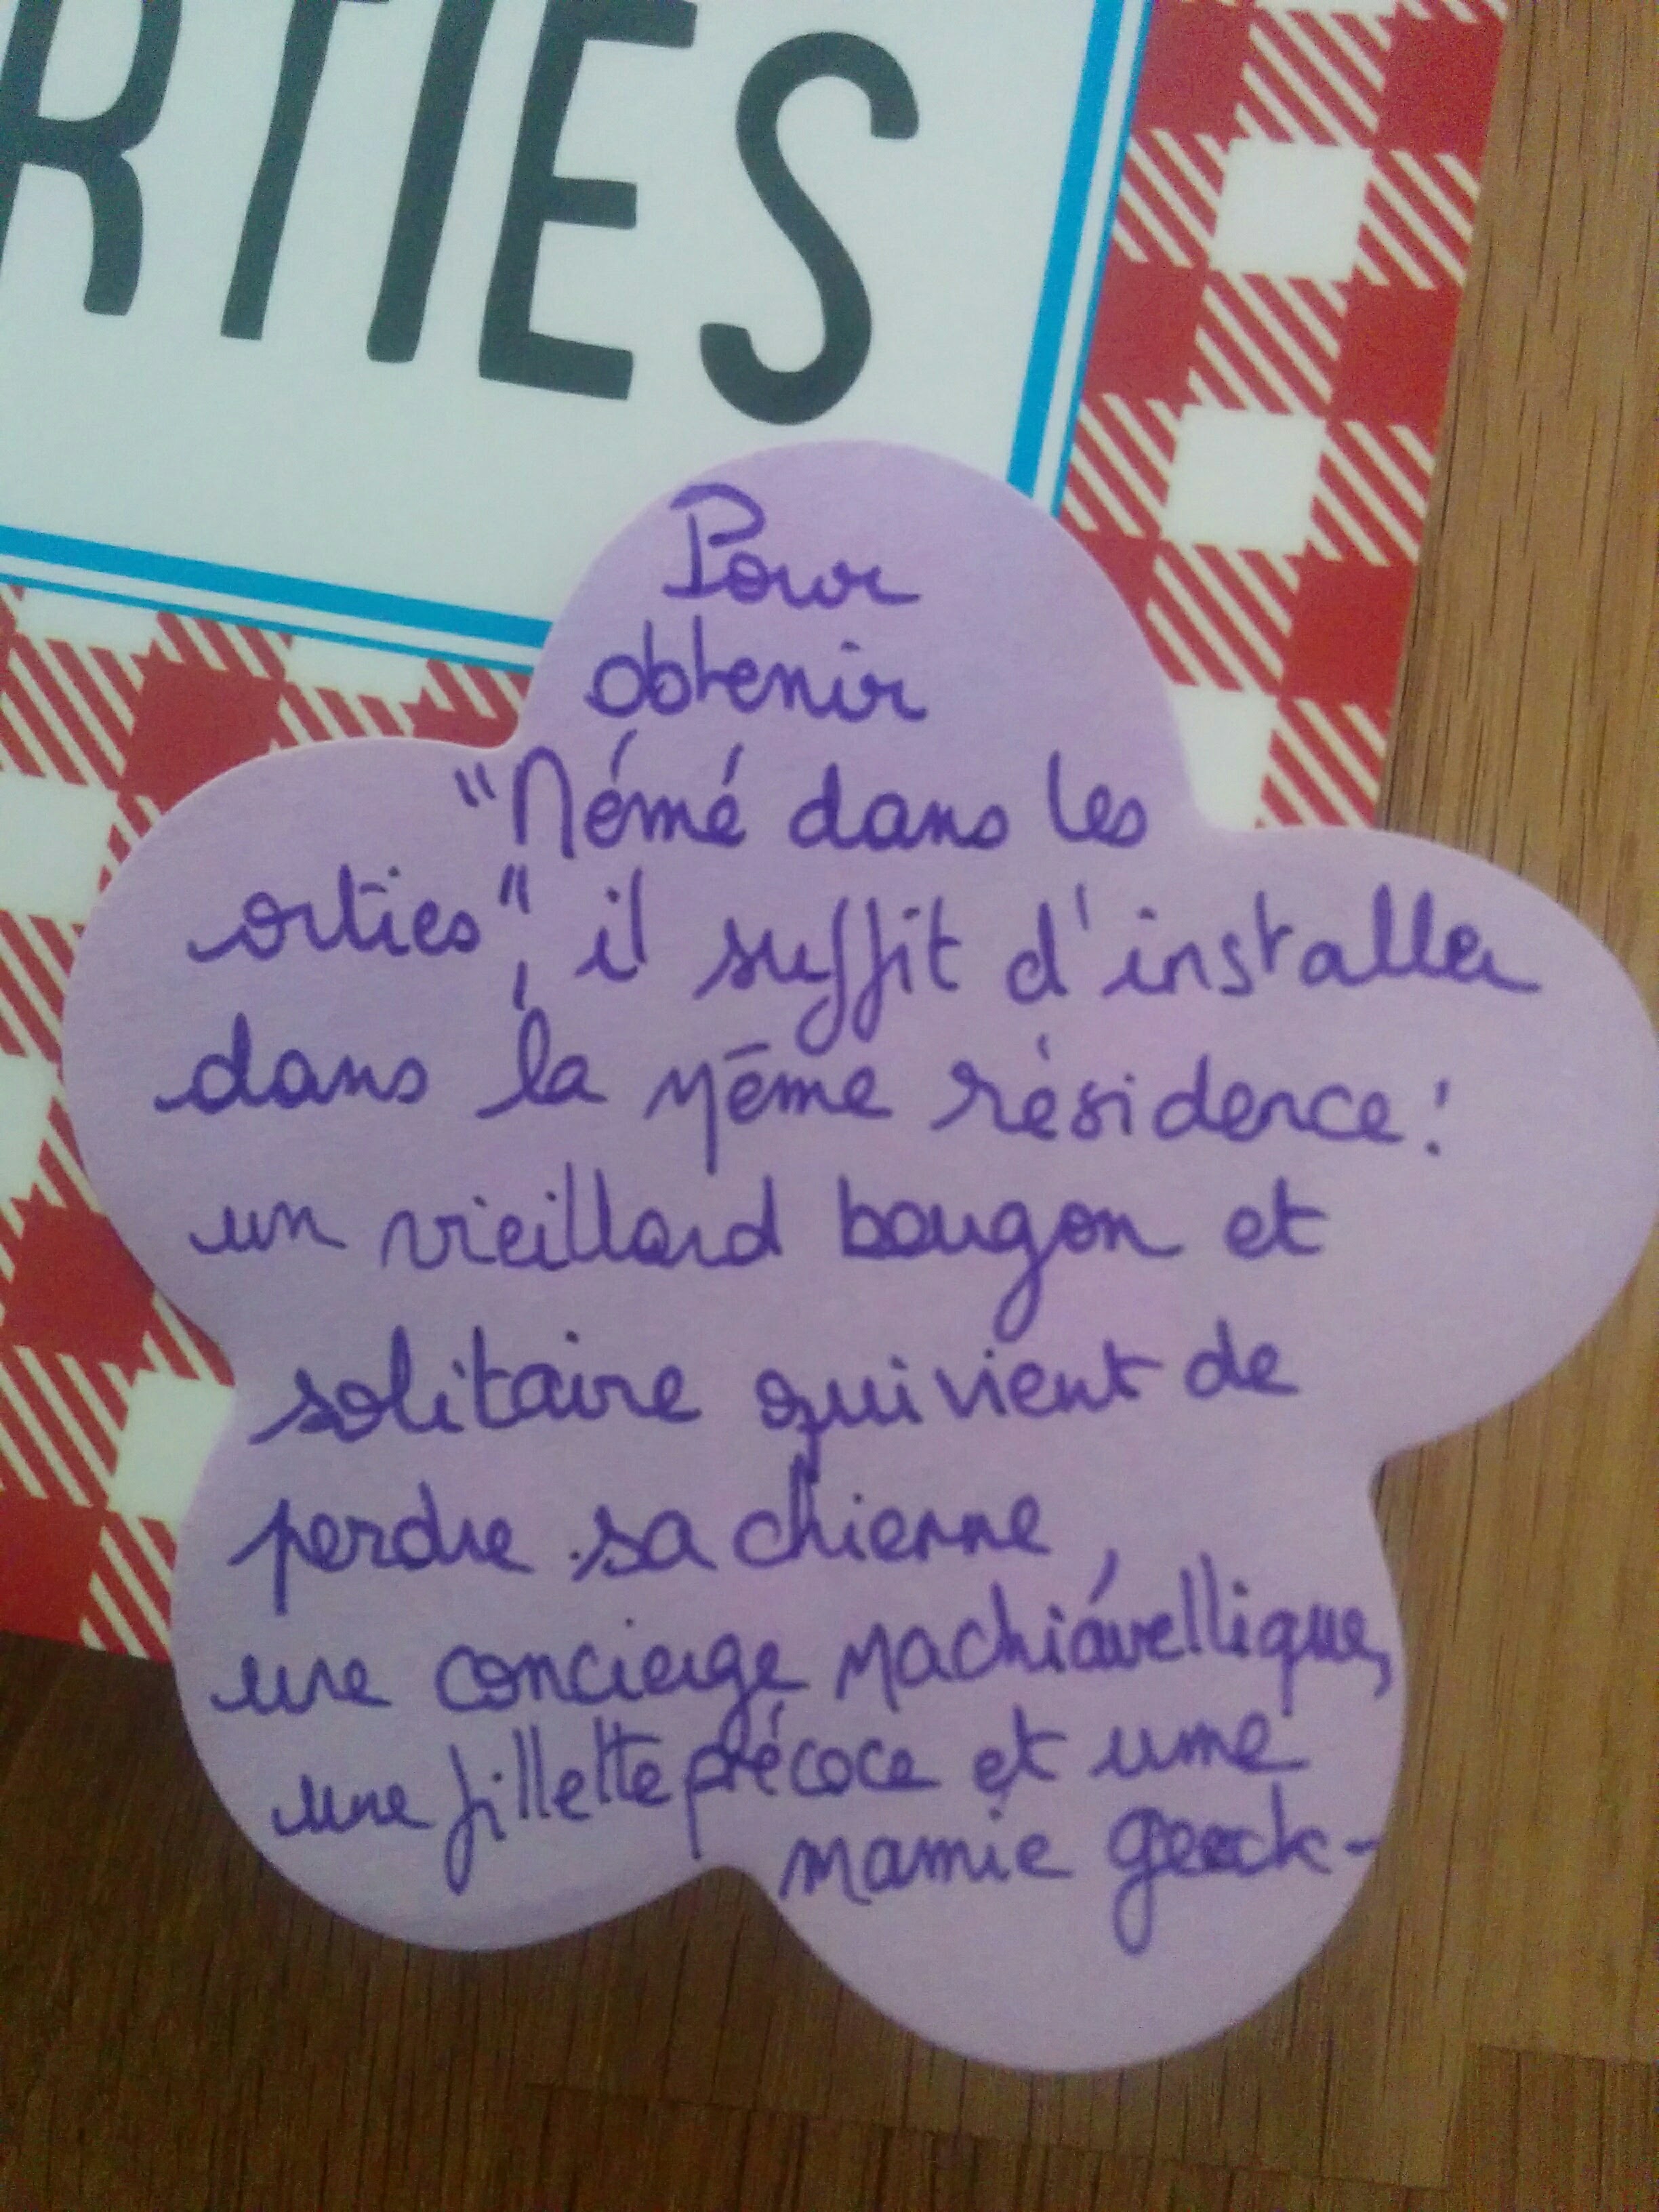 RTIES
Pour
obtenir
"Mémé dans les
orties", il suffit d'installer
dans la même résidence :
un vieillard bougon et
solitaire qui vient de
perdre sa chienne,
une concierge machiavellique,
une fillette précoce et une
mamie geek-